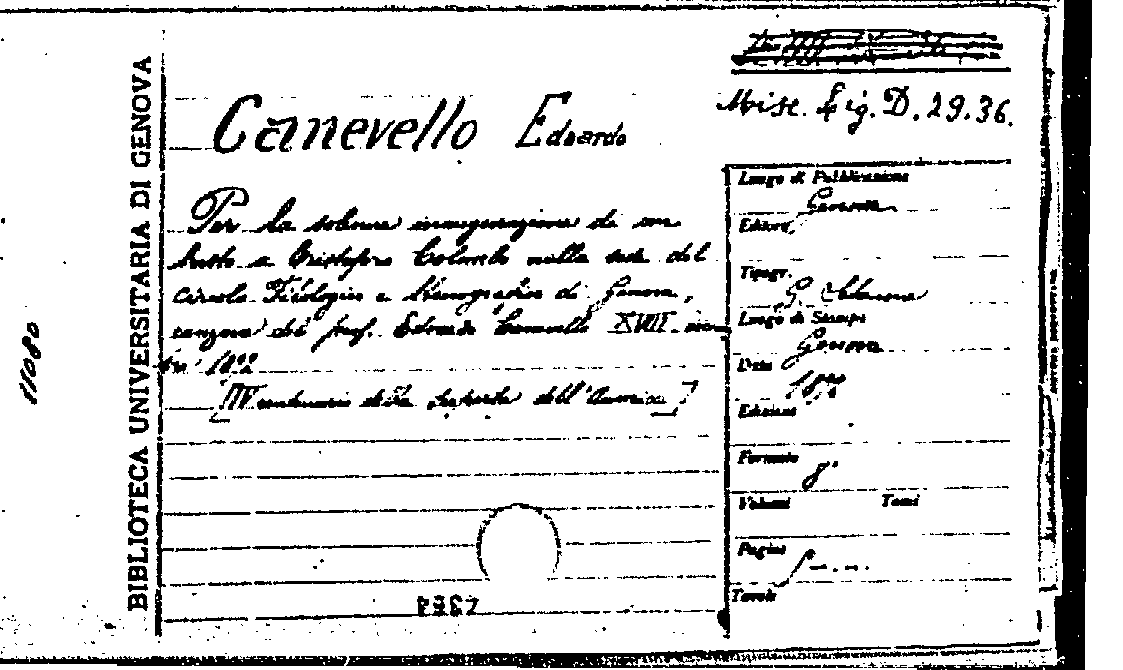 BIBLIOTECA UNIVERSITARIA DI GENOVA
11080
Misc. Lig. D. 29.36.
Canevello Edoardo
Per la solenne inaugurazione di un
busto a Cristoforo Colombo nella sede del
Circolo Filologico e Stenografico di Genova,
canzone del prof. Edoardo Canevello XVII
1892
[IV centenario della scoperta dell'America]
Luogo di Pubblicazione
Genova
Editore
Tipogr.
Luogo di Stampa
Genova
Data
1892
Edizione
Formato
8°
Volumi Tomi
Pagine
Tavole